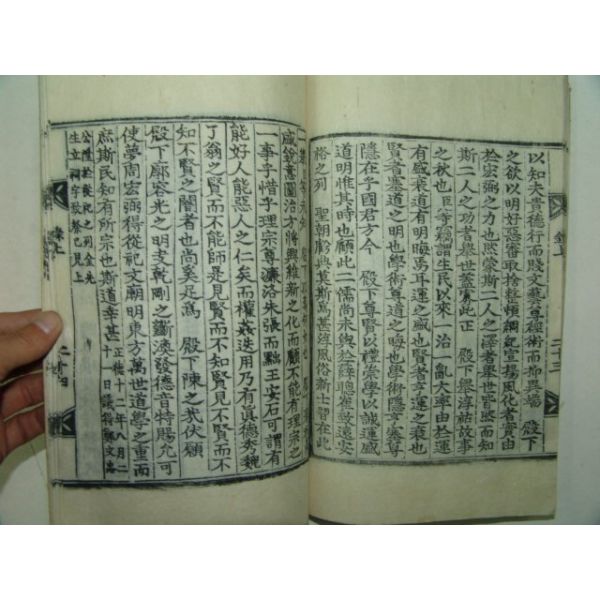 以知夫貴德行而賤文藝尊經術而抑異端 殿下
之欲以明好惡審取捨整頓綱紀宣揚風化者實由
於宏弼之力也然蒙斯二人之澤者擧世皆然而知
斯二人之功者擧世蓋寡此正 殿下
之秋也臣等竊謂生民以來一治一亂大率由於運
有盛衰道有明晦焉耳運之盛也賢者享
賢者塞道之明也學術尊道之晦也學術
隱在乎國君方今 殿下尊賢以禮崇學以誠運盛
道明惟其時也顧此二儒尚未與於薛聰崔致遠安
裕之列 聖朝闕典莫斯爲甚淳風俗新士習在此
盛銳意圖治方將與維新之化而顧不能有理宗之
一事乎惜乎理宗尊濂洛朱張而黜王安石可謂有
能好人能惡人之仁矣而權姦迭用乃有眞德秀魏
了翁之賢而不能師是見賢而不知賢見不賢而不
知不賢之闇者也尚奚足爲 殿下陳之哉伏願
殿下廓容光之明支乾剛之斷渙發德音特賜允可
使夢周宏弼得從祀文廟明東方萬世道學之重而
庶斯民知有所宗也斯道幸甚 正德十二年八月二
十一日
生立祠宇致祭已見上
錄上
二十三
二十四